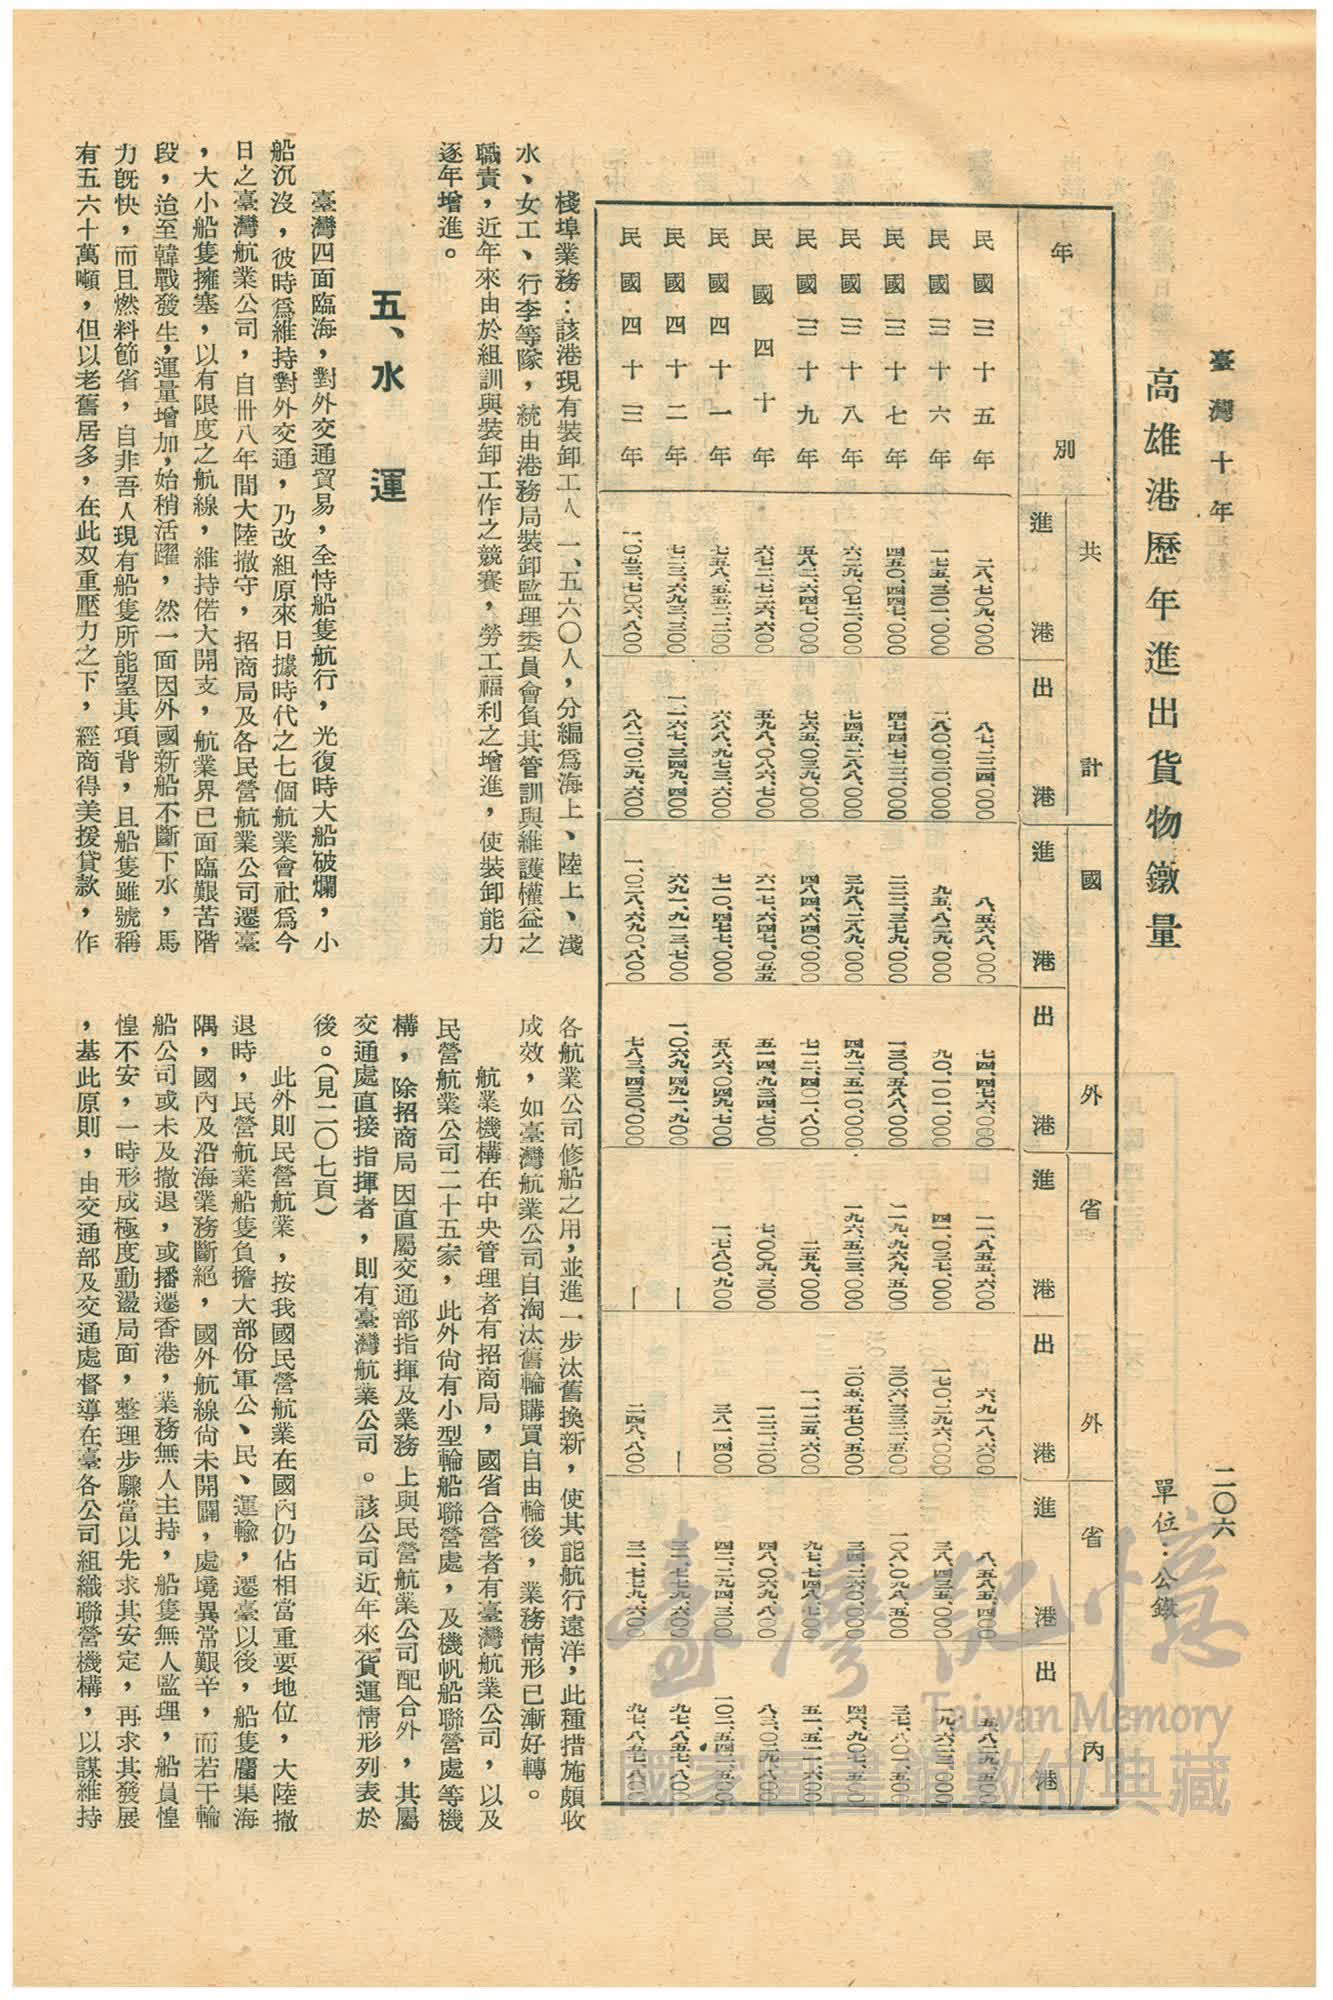 臺灣十年
二〇六
高雄港歷年進出貨物鐓量
單位：公鐓
年別 共計 國外 省外 省內
進港 出港 進港 出港 進港 出港 進港 出港
民國三十五年 二八、七〇九、〇〇〇 八七、二二四、〇〇〇 八、五六八、〇〇〇 七四、四七六、〇〇〇 一一、八五五、六〇〇 六、九一八、六〇〇 八、五八五、四〇〇 五、八二九、五〇〇
民國三十六年 一七五、三〇一、〇〇〇 二八〇、〇二〇、〇〇〇 九五、八二九、〇〇〇 九〇、一〇一、〇〇〇 四一、〇三七、〇〇〇 一七〇、二九六、〇〇〇 三八、四三五、〇〇〇 一九、六二三、〇〇〇
民國三十七年 四五〇、四四七、〇〇〇 四七四、七二二、〇〇〇 二二二、三七九、〇〇〇 一三〇、五八八、〇〇〇 一一九、九六九、五〇〇 三〇六、三三二、五〇〇 一〇八、〇九八、五〇〇 三七、八〇一、五〇〇
民國三十八年 六二九、〇七二、〇〇〇 七四五、二八八、〇〇〇 三九八、二八九、〇〇〇 四九二、五一〇、〇〇〇 一九六、五二三、〇〇〇 二〇五、五七〇、五〇〇 三四、二六〇、〇〇〇 四六、九〇七、五〇〇
民國三十九年 五八二、六四七、〇〇〇 七六五、〇三九、〇〇〇 四八四、六四〇、〇〇〇 七一二、四〇一、八〇〇 二五九、〇〇〇 一、一二五、六〇〇 九七、七四八、七〇〇 五一、五一二、六〇〇
民國四十年 六七二、七二六、六〇〇 五九八、〇八六、七〇〇 六一七、六四七、〇五五 五一四、九三四、七〇〇 七、〇〇九、三〇〇 一二二、二〇〇 四八、〇六九、八〇〇 八三、〇二九、八〇〇
民國四十一年 七五八、五五二、二〇〇 六八八、九七三、六〇〇 七一〇、四七七、〇〇〇 五八六、〇四九、七〇〇 一、七八〇、九〇〇 三八一、四〇〇 四二、二九四、三〇〇 一〇二、五四二、五〇〇
民國四十二年 七二三、六九三、三〇〇 一、一六七、三四九、四〇〇 六九一、九一三、七〇〇 一、〇六九、四九一、九〇〇 — — 三一、七七九、六〇〇 九七、八五七、八〇〇
民國四十三年 一、〇五三、七〇六、八〇〇 八八二、〇二九、六〇〇 一、〇二八、六九〇、八〇〇 七八三、四三〇、〇〇〇 — 二四八、八〇〇 三一、七七九、六〇〇 九七、八五七、八〇〇
棧埠業務：該港現有裝卸工人一、五六〇人，分編爲海上、陸上、淺
水、女工、行李等隊，統由港務局裝卸監理委員會負其管訓與維護權益之
職責，近年來由於組訓與裝卸工作之競賽，勞工福利之增進，使裝卸能力
逐年增進。
五、水運
臺灣四面臨海，對外交通貿易，全恃船隻航行，光復時大船破爛，小
船沉沒，彼時爲維持對外交通，乃改組原來日據時代之七個航業會社爲今
日之臺灣航業公司，自卅八年間大陸撤守，招商局及各民營航業公司遷臺
，大小船隻擁塞，以有限度之航線，維持偌大開支，航業界已面臨艱苦階
段，迨至韓戰發生，運量增加，始稍活躍，然一面因外國新船不斷下水，馬
力旣快，而且燃料節省，自非吾人現有船隻所能望其項背，且船隻雖號稱
有五六十萬噸，但以老舊居多，在此双重壓力之下，經商得美援貸款，作
各航業公司修船之用，並進一步汰舊換新，使其能航行遠洋，此種措施頗收
成效，如臺灣航業公司自淘汰舊輪購買自由輪後，業務情形已漸好轉。
航業機構在中央管理者有招商局，國省合營者有臺灣航業公司，以及
民營航業公司二十五家，此外尙有小型輪船聯營處，及機帆船聯營處等機
構，除招商局因直屬交通部指揮及業務上與民營航業公司配合外，其屬
交通處直接指揮者，則有臺灣航業公司。該公司近年來貨運情形列表於
後。（見二〇七頁）
此外則民營航業，按我國民營航業在國內仍佔相當重要地位，大陸撤
退時，民營航業船隻負擔大部份軍公、民、運輸，遷臺以後，船隻麕集海
隅，國內及沿海業務斷絕，國外航線尙未開闢，處境異常艱辛，而若干輪
船公司或未及撤退，或播遷香港，業務無人主持，船隻無人監理，船員惶
惶不安，一時形成極度動盪局面，整理步驟當以先求其安定，再求其發展
，基此原則，由交通部及交通處督導在臺各公司組織聯營機構，以謀維持
臺灣記憶
Taiwan Memory
國家圖書館數位典藏